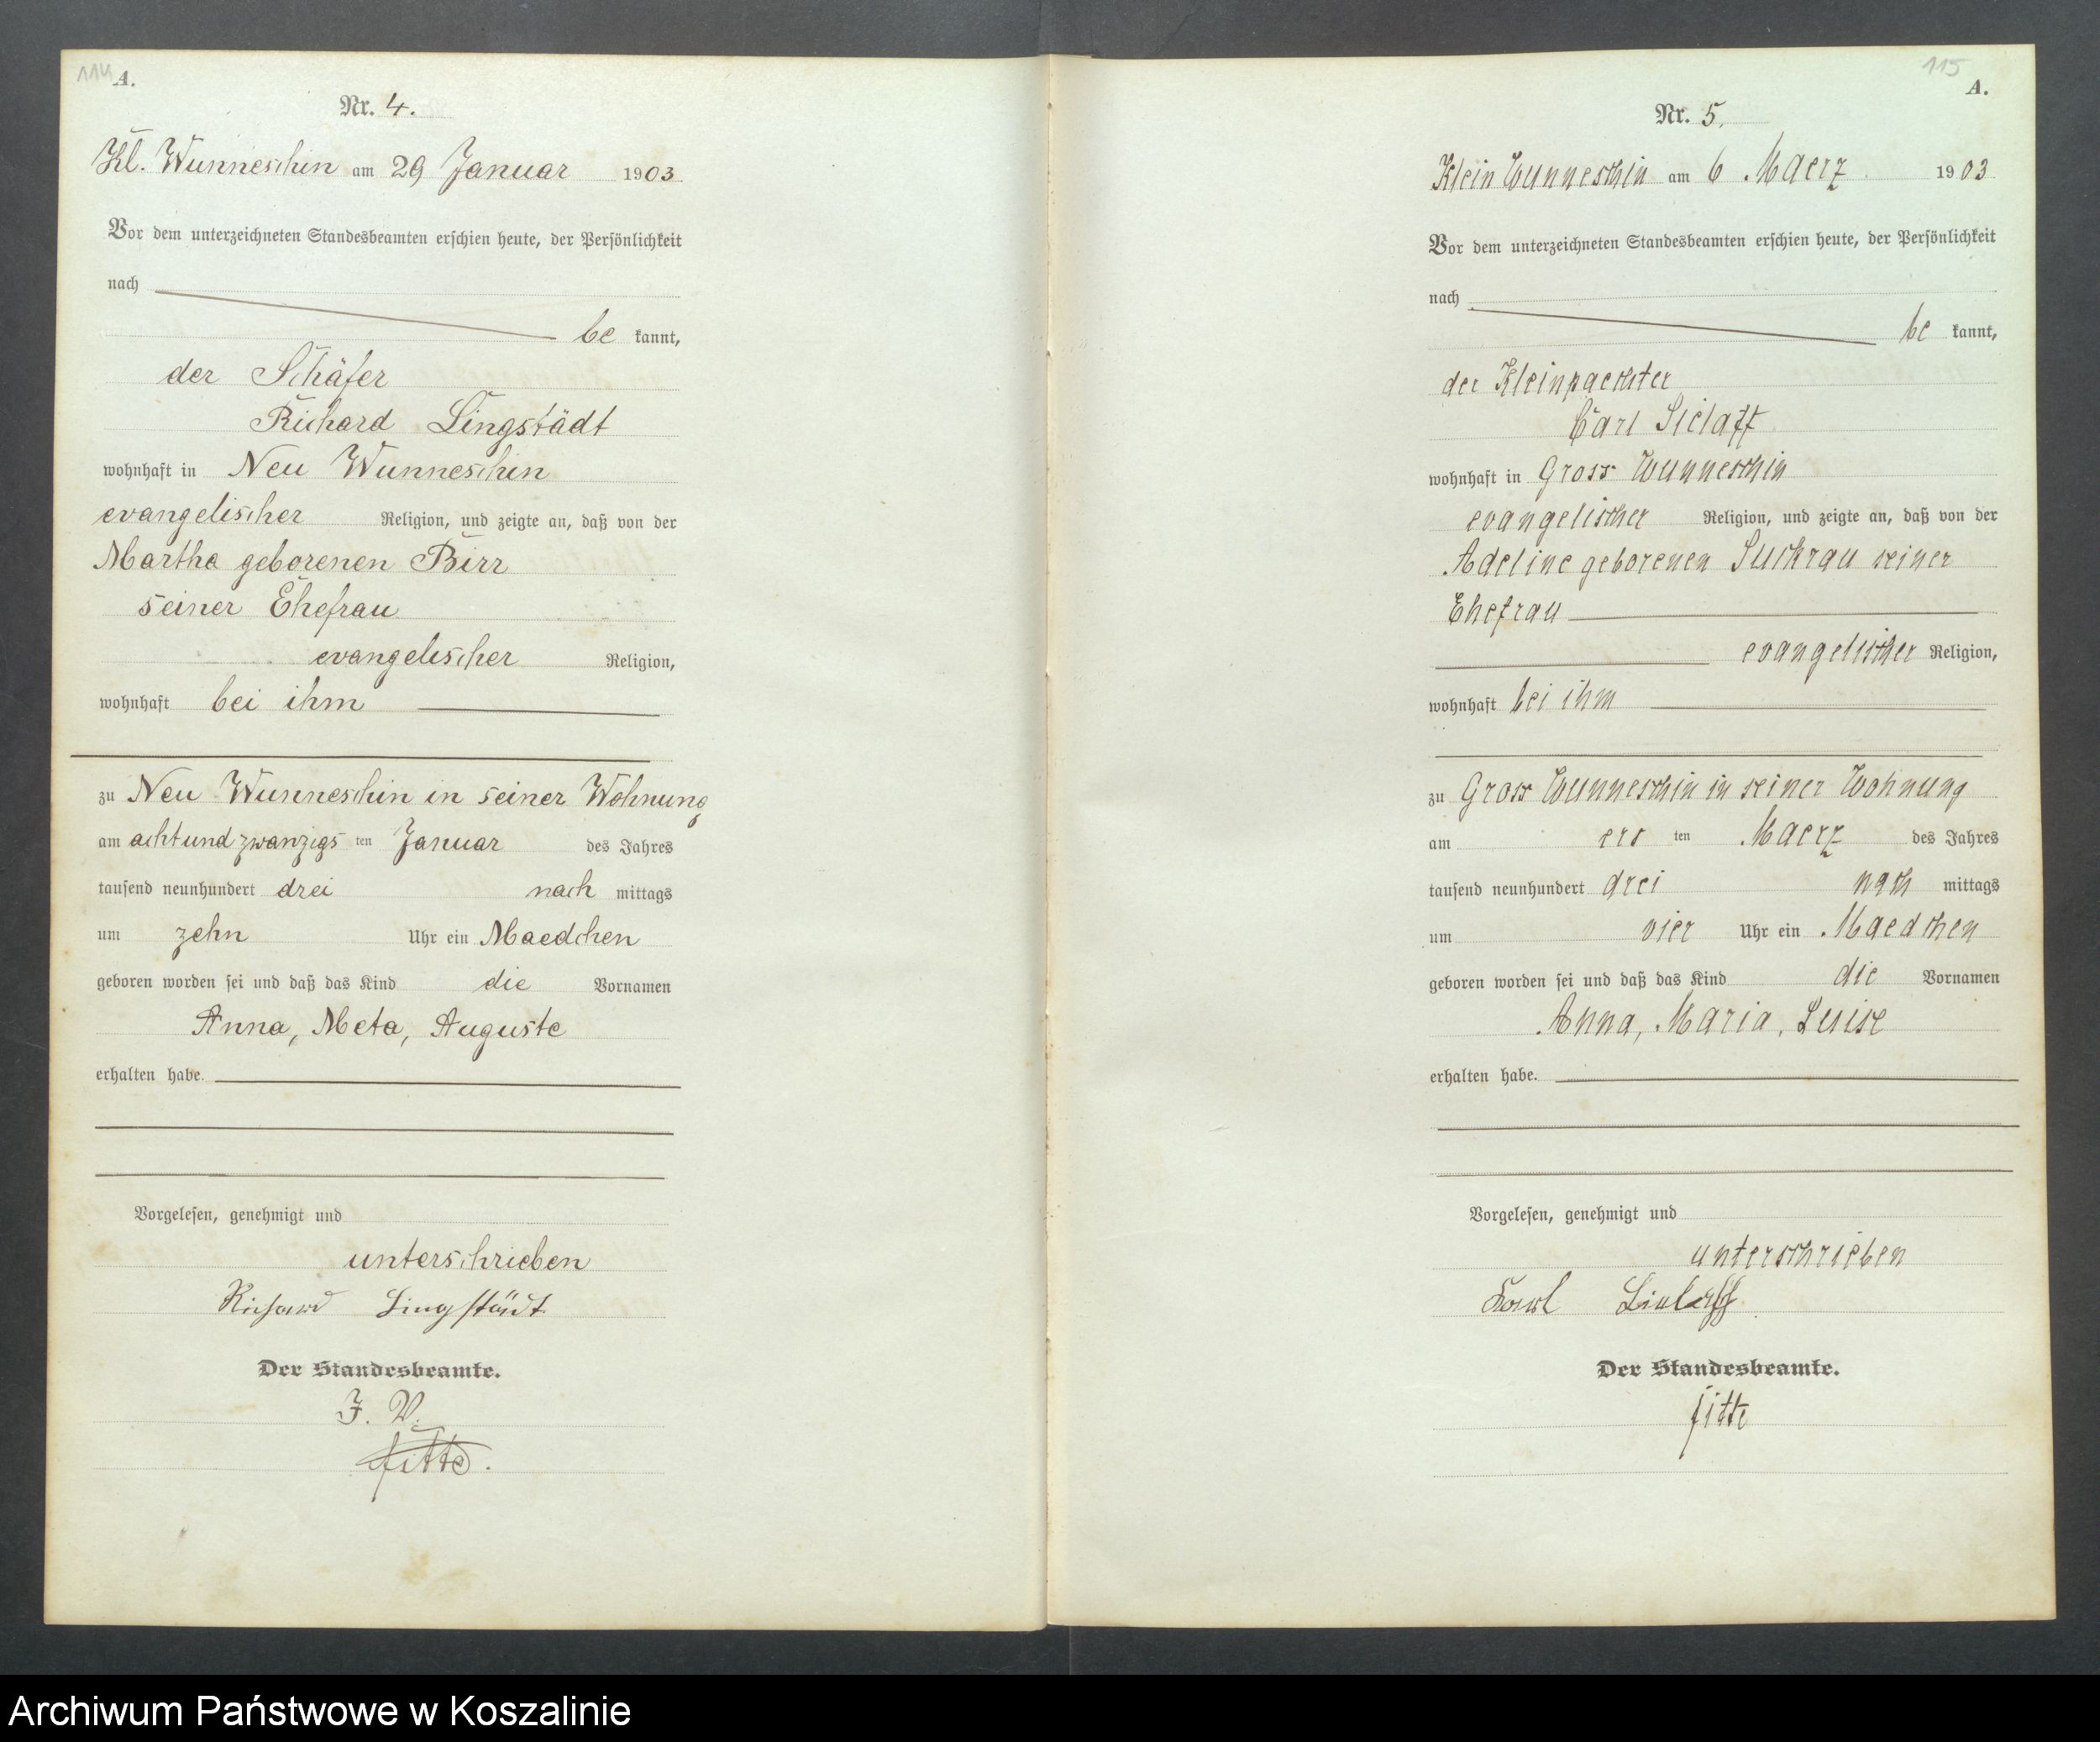 114
A.
Nr. 4.
Kl. Wunneschin am 29 Januar 1903
Vor dem unterzeichneten Standesbeamten erschien heute, der Persönlichkeit
nach
be kannt,
der Schäfer
Richard Lingstädt
wohnhaft in Neu Wunneschin
evangelischer Religion, und zeigte an, daß von der
Martha geborenen Birr
seiner Ehefrau
evangelischer Religion,
wohnhaft bei ihm
zu Neu Wunneschin in seiner Wohnung
am achtundzwanzigs ten Januar des Jahres
tausend neunhundert drei nach mittags
um zehn Uhr ein Maedchen
geboren worden sei und daß das Kind die Vornamen
Anna, Meta, Auguste
erhalten habe.
Vorgelesen, genehmigt und
unterschrieben
Richard Lingstädt
Der Standesbeamte.
J. V.
Fitte.
115
A.
Nr. 5.
Klein Wunneschin am 6 Maerz 1903
Vor dem unterzeichneten Standesbeamten erschien heute, der Persönlichkeit
nach
be kannt,
der Kleinpaechter
Carl Siclaff
wohnhaft in Gross Wunneschin
evangelischer Religion, und zeigte an, daß von der
Adeline geborenen Suchrau seiner
Ehefrau
evangelischer Religion,
wohnhaft bei ihm
zu Gross Wunneschin in seiner Wohnung
am ers ten Maerz des Jahres
tausend neunhundert drei nach mittags
um vier Uhr ein Maedchen
geboren worden sei und daß das Kind die Vornamen
Anna, Maria, Luise
erhalten habe.
Vorgelesen, genehmigt und
unterschrieben
Karl
Der Standesbeamte.
Fitte
Archiwum Państwowe w Koszalinie